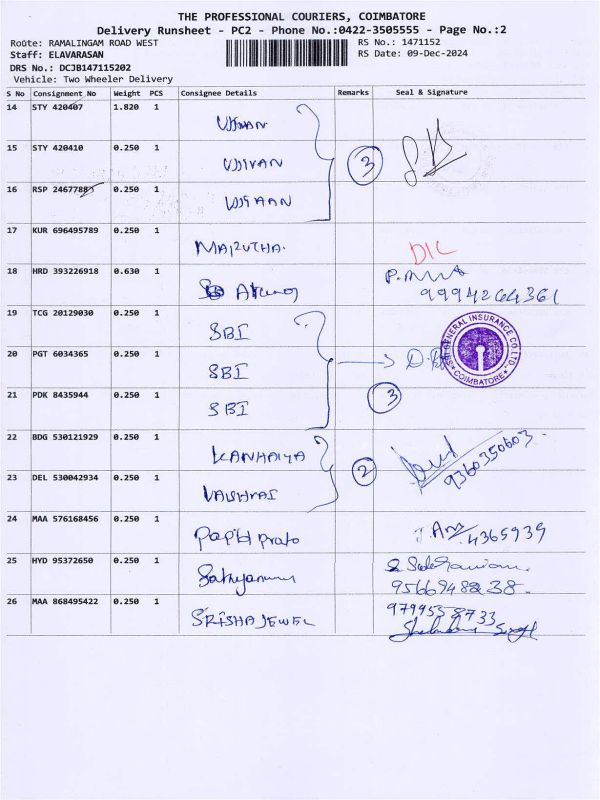 THE PROFESSIONAL COURIERS, COIMBATORE
Delivery Runsheet - PC2 - Phone No.:0422-3505555 - Page No.:2
Route: RAMALINGAM ROAD WEST RS No.: 1471152
Staff: ELAVARASAN RS Date: 09-Dec-2024
DRS No.: DCJB147115202
Vehicle: Two Wheeler Delivery
S No Consignment No Weight PCS Consignee Details Remarks Seal & Signature
14 STY 420407 1.820 1
15 STY 420410 0.250 1 UJJIVAN 3
16 RSP 0.250 1
17 KUR 696495789 0.250 1 MARUTHA. DIC
18 HRD 393226918 0.630 1
9994264361
19 TCG 20129030 0.250 1 SBI
20 PGT 6034365 0.250 1 SBI GENERAL INSURANCE CO LTD. COIMBATORE
21 PDK 8435944 0.250 1 SBI 3
22 BDG 530121929 0.250 1 KANHAIYA 2 9360350603.
23 DEL 530042934 0.250 1
24 MAA 576168456 0.250 1 4365939
25 HYD 95372650 0.250 1
26 MAA 868495422 0.250 1 SRISHA JEWEL